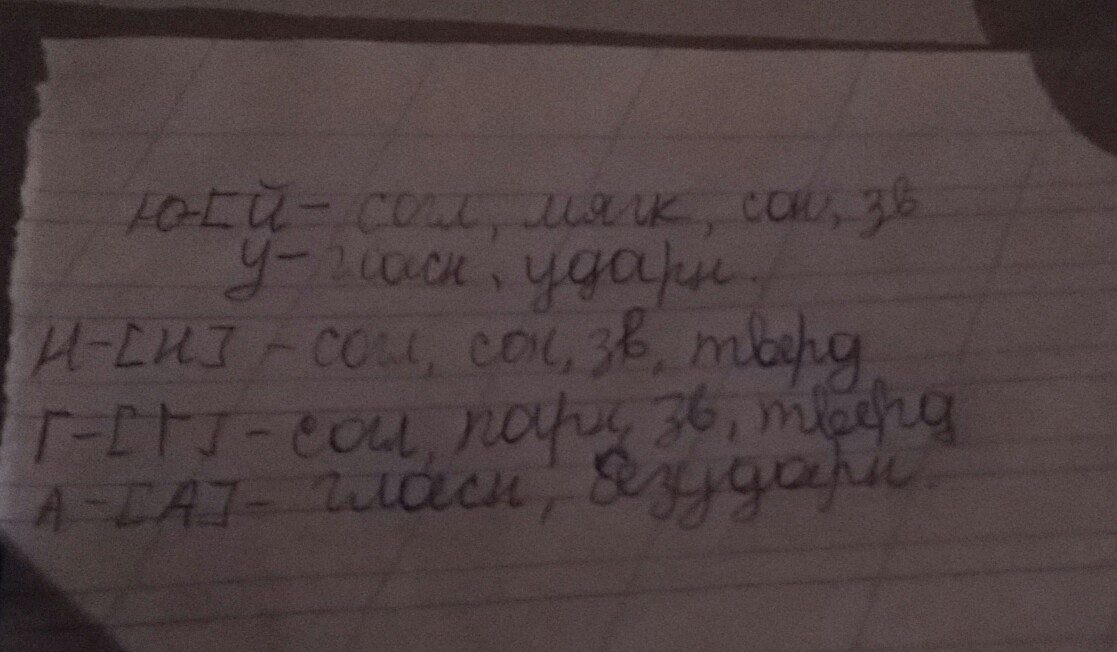 Ю-[Й - согл, мягк, сон, зв
У - гласн, ударн.
Н-[Н] - согл, сон, зв, тверд
Г-[Г] - согл, парн, зв, тверд
А-[А] - гласн, безударн.